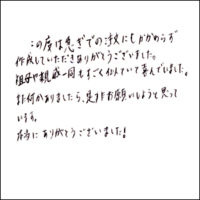 この度は急ぎでのご注文にもかかわらず
作成していただきありがとうございました。
祖母や親戚一同もすごく似ていて喜んでいました。
また何かありましたら、是非お願いしようと思って
います。
本当にありがとうございました!